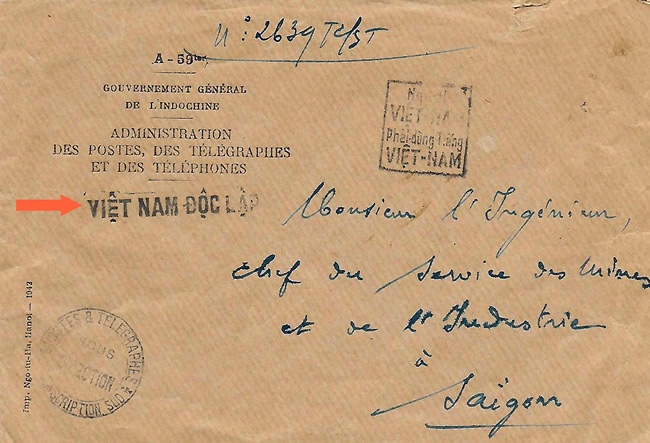 N°: 2639 Tc/3T
A - 59ter
GOUVERNEMENT GÉNÉRAL
DE L'INDOCHINE
ADMINISTRATION
DES POSTES, DES TÉLÉGRAPHES
ET DES TÉLÉPHONES
VIỆT NAM ĐỘC LẬP
VIỆT-NAM
Phải dùng tiếng
VIỆT-NAM
Monsieur l'Ingénieur,
chef du Service des Mines
et de l'Industrie
à
Saïgon
POSTES & TELEGRAPHES
SOUS
CTION
SCRIPTION SUD
Imp. Ngo-tu-Ha, Hanoi — 1942